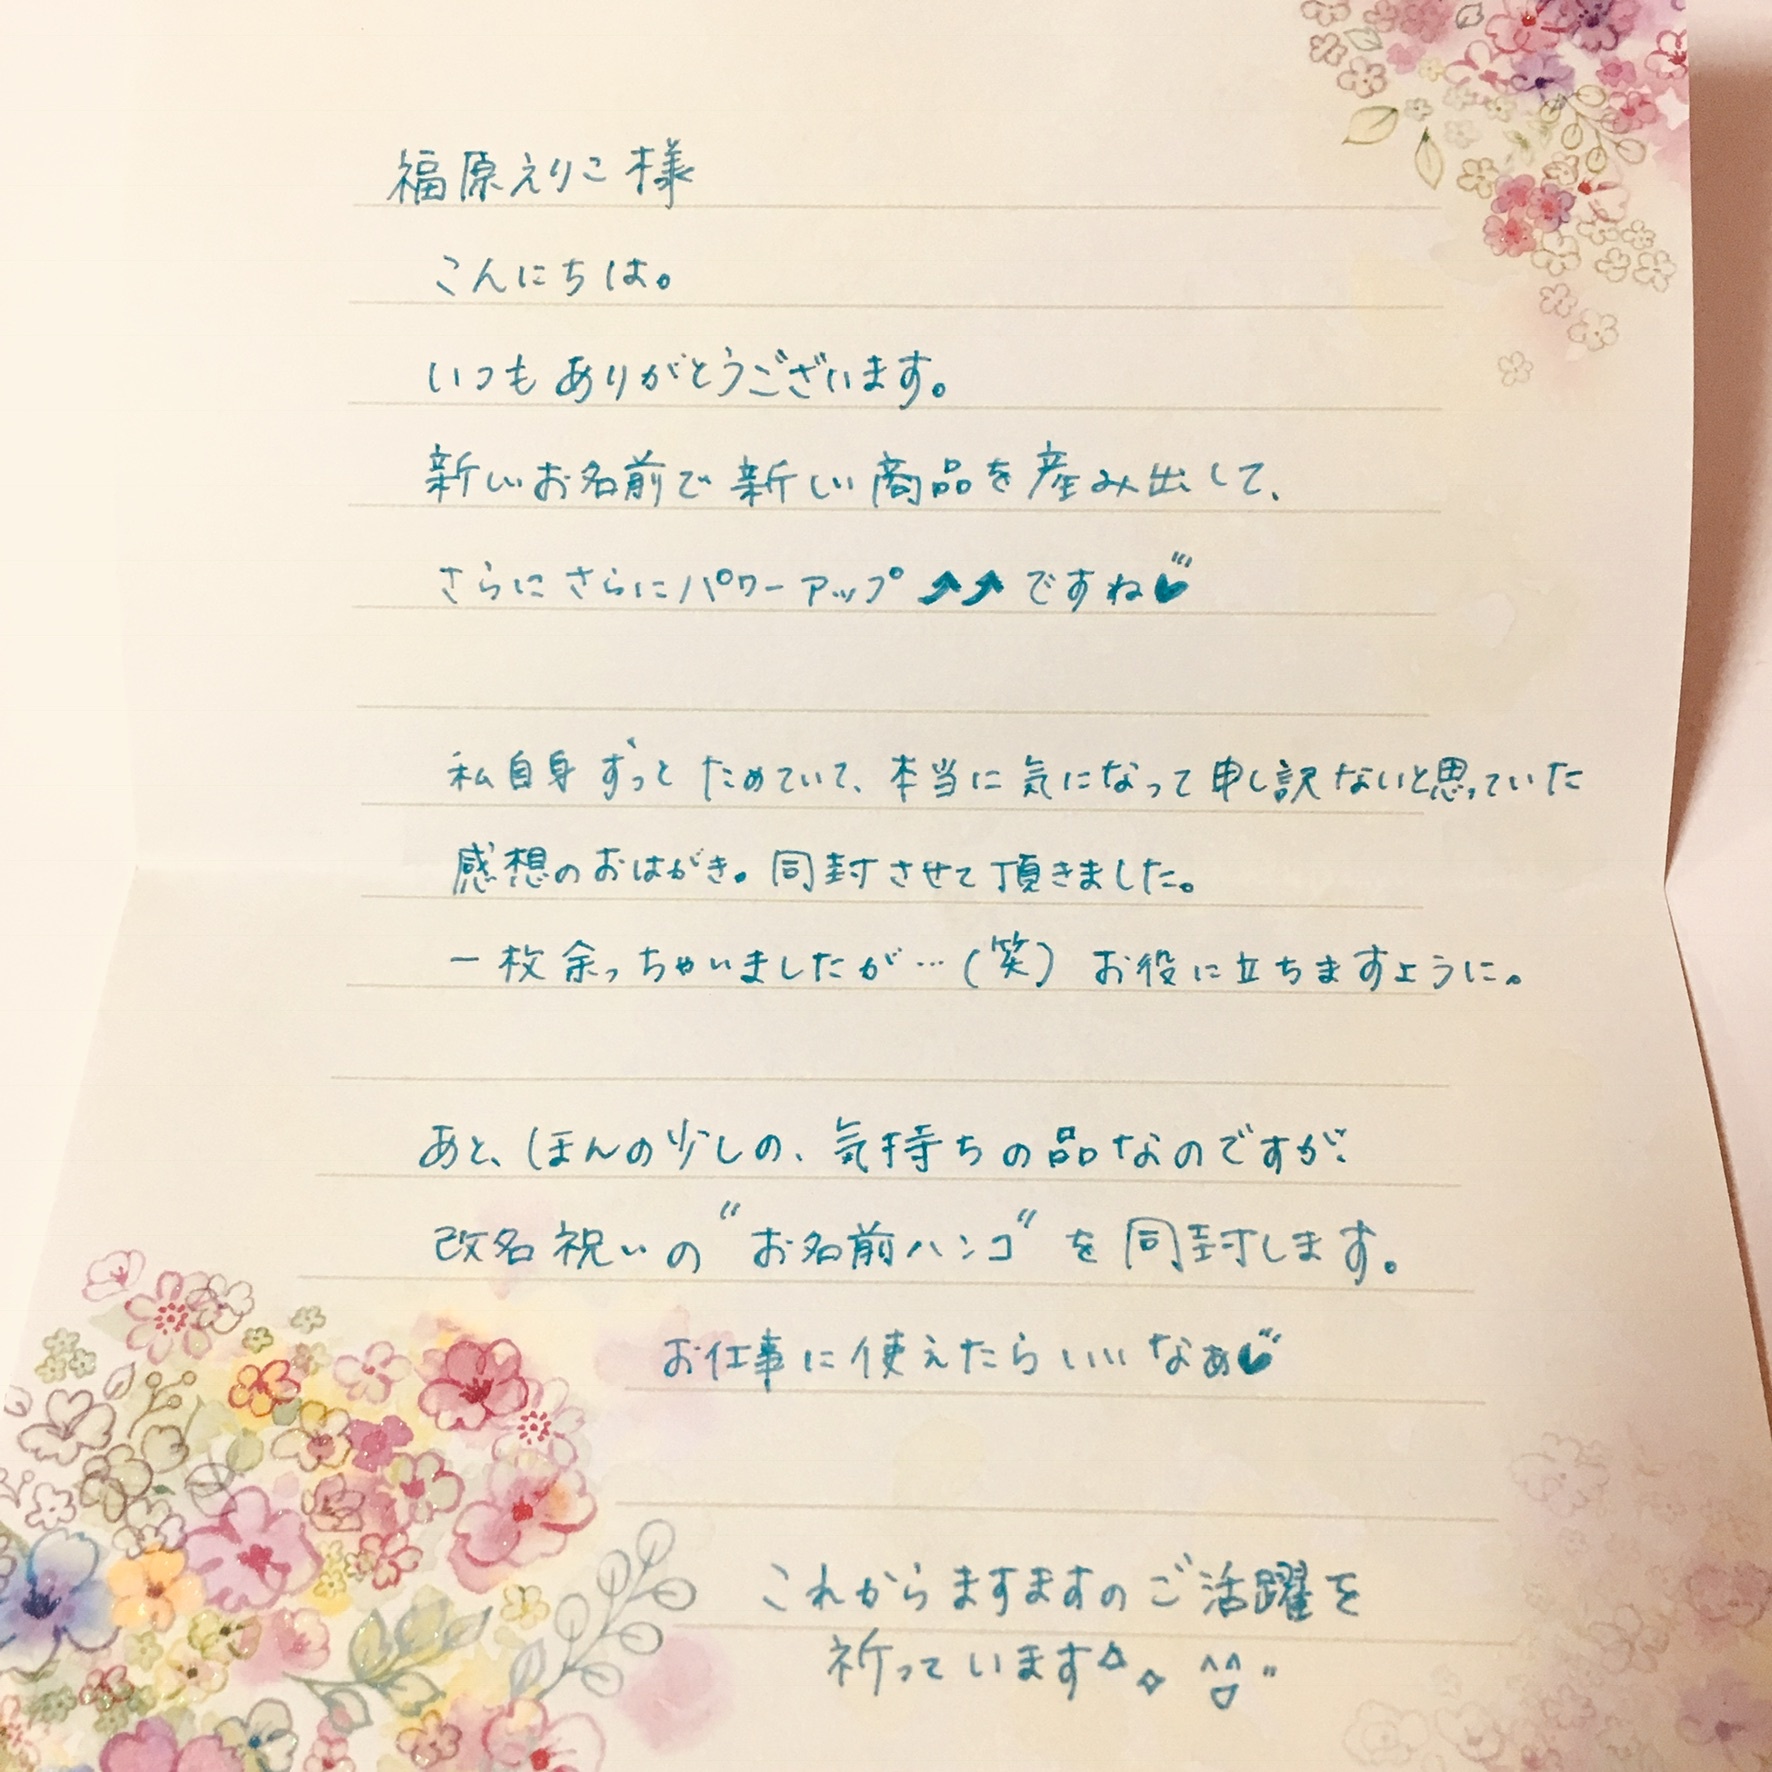 福原えりこ様
こんにちは。
いつもありがとうございます。
新しいお名前で新しい商品を産み出して、
さらにさらにパワーアップ⤴⤴ですね♥
私自身ずっとためていて、本当に気になって申し訳ないと思っていた
感想のおはがき。同封させて頂きました。
一枚余っちゃいましたが…(笑) お役に立ちますように。
あと、ほんの少しの、気持ちの品なのですが、
改名祝いの"お名前ハンコ"を同封します。
お仕事に使えたらいいなぁ♥
これからますますのご活躍を
祈っています